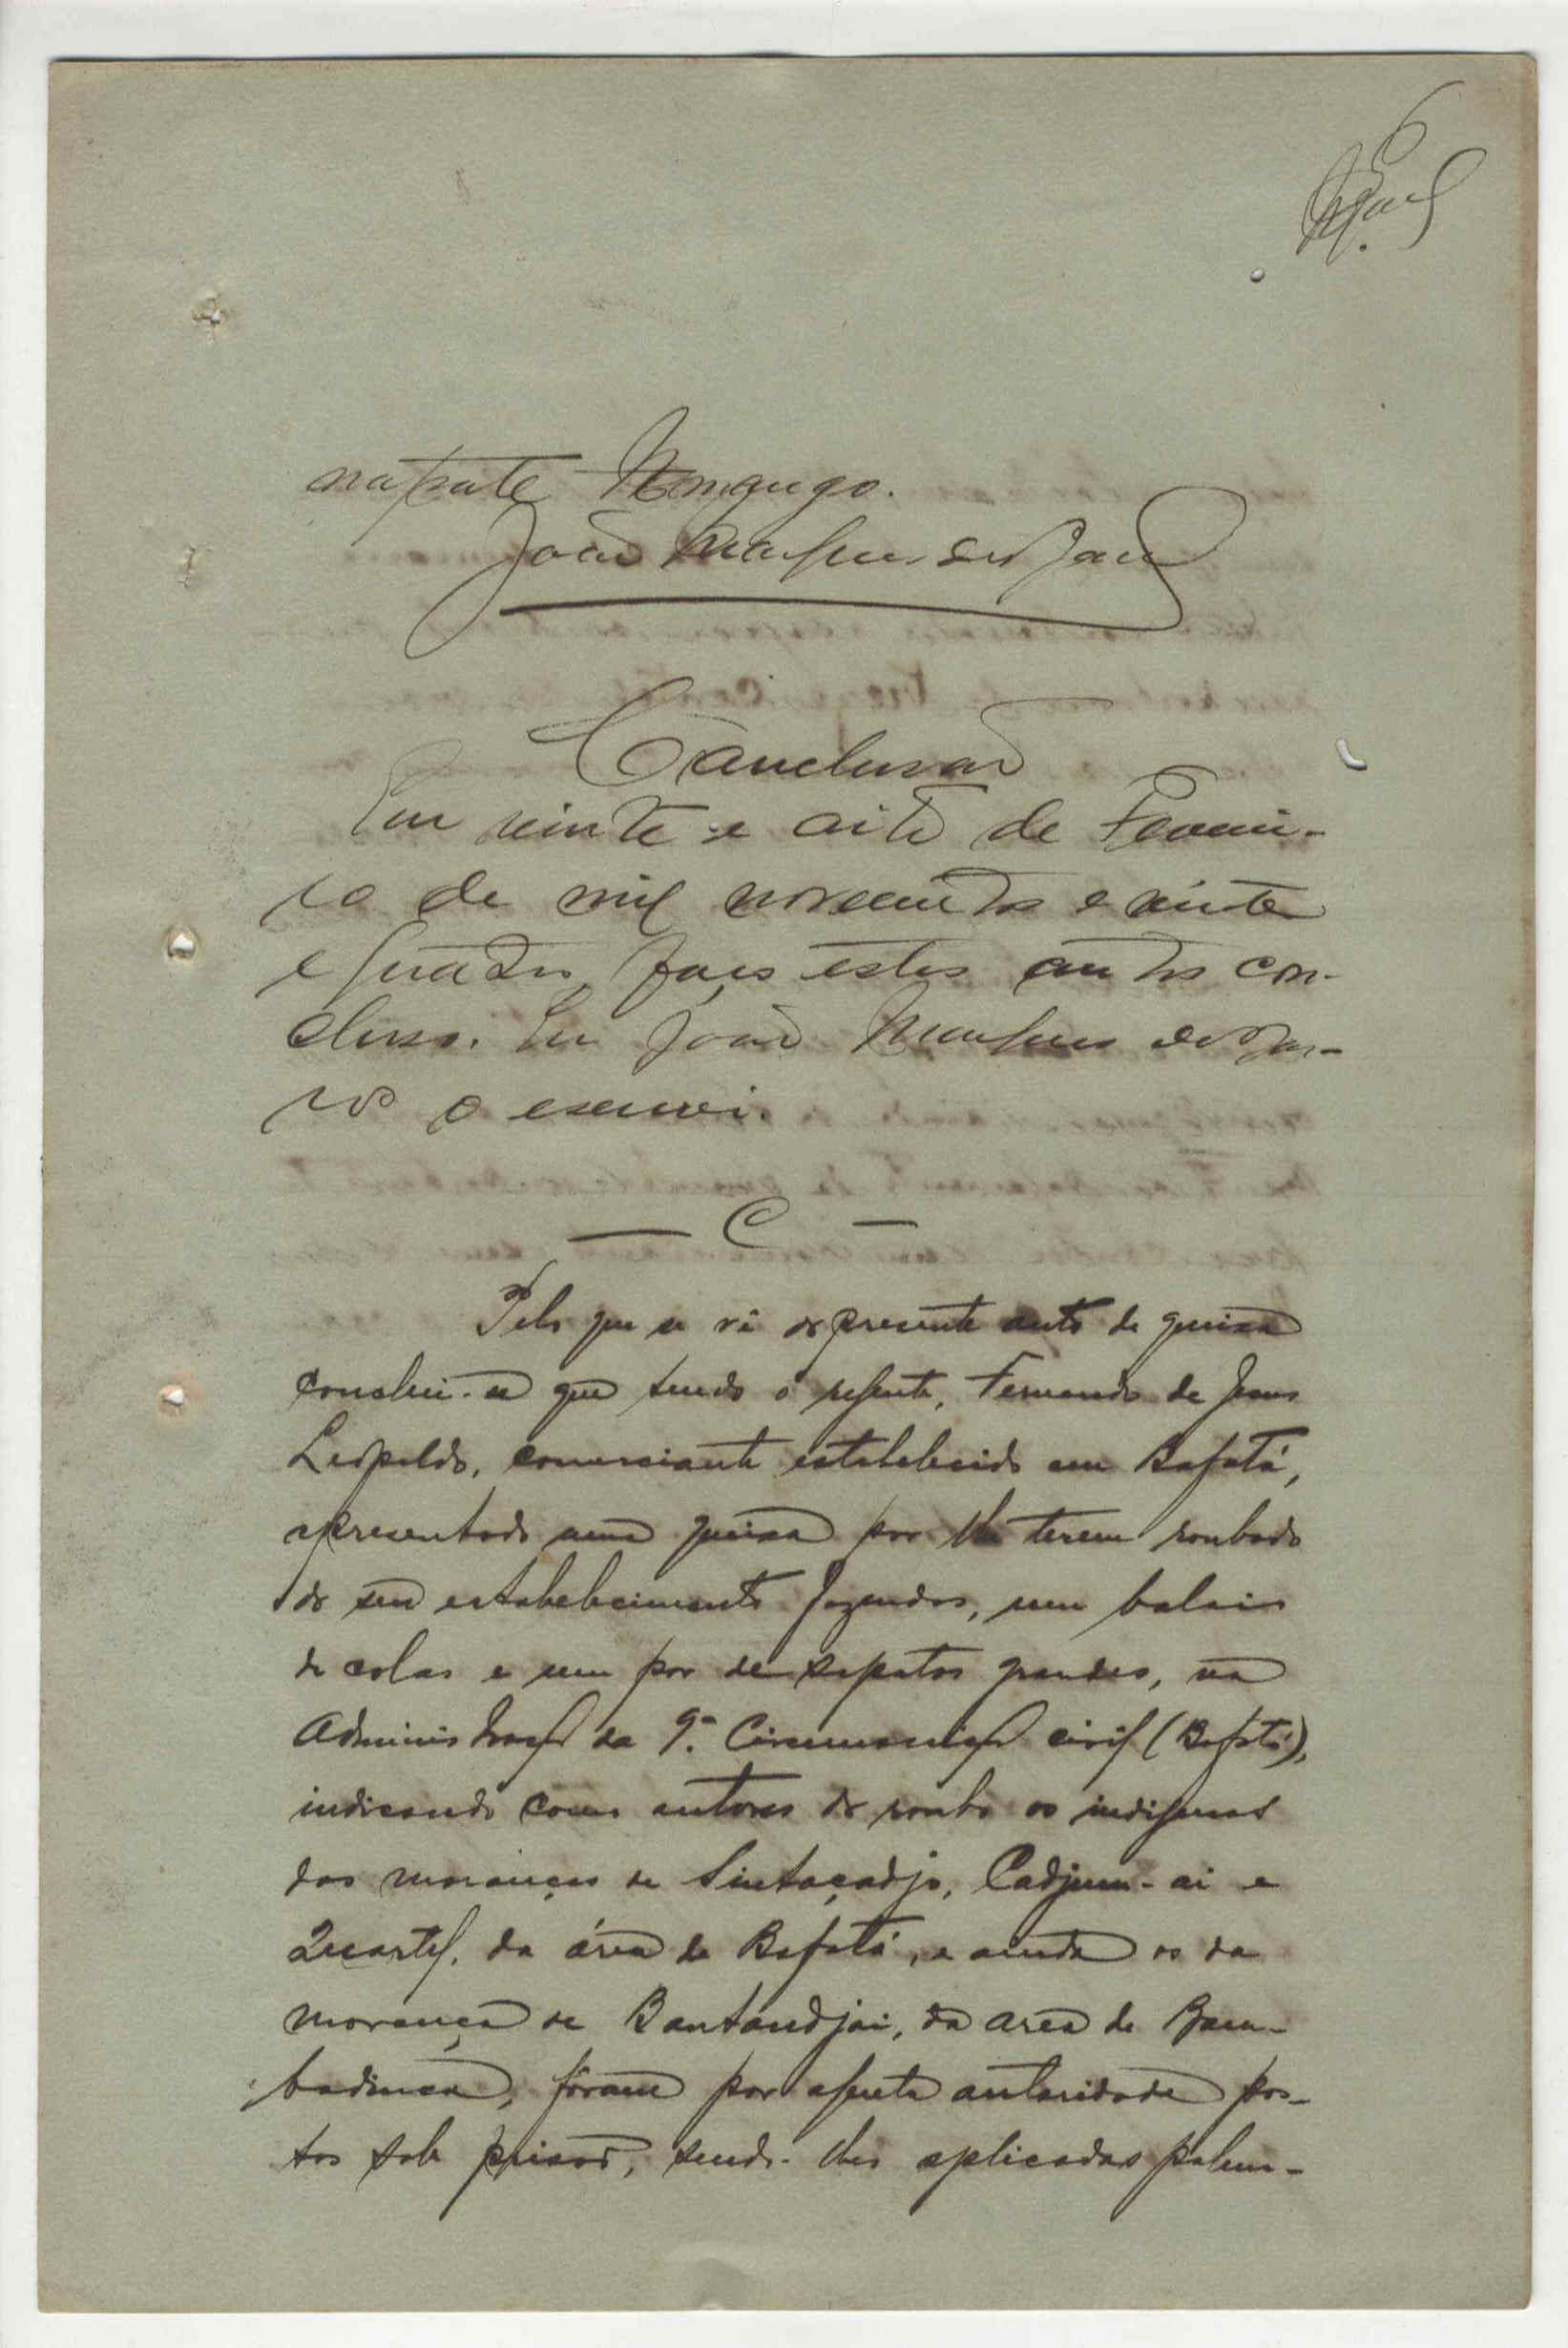 6
João Marques de Barros
Conclusão
Em vinte e oito de Feverei-
ro de mil novecentos e vinte
e quatro, faço estes autos con-
clusos. Eu João Marques de Bar-
ros o escrevi.
— C —
Pelo que se vê do presente auto de queixa
conclui-se que tendo o Fernando de Jesus
Leopoldo, comerciante estabelecido em Bafatá,
apresentado uma queixa por lhe terem roubado
do seu estabelecimento fazendas, um balaio
de colas e um par de sapatos grandes, na
Administração da 9.ª Circunscrição civil (Bafatá),
indicando como autores do roubo os indígenas
das moranças de Sintaçadjo, Cadjum-ai e
Quartel, da área de Bafatá, e ainda os da
morança de Bantandjai, da area de Bam-
badinca, fôram por aquela autoridade pos-
tos sob prisão, sendo-lhes aplicadas palma-